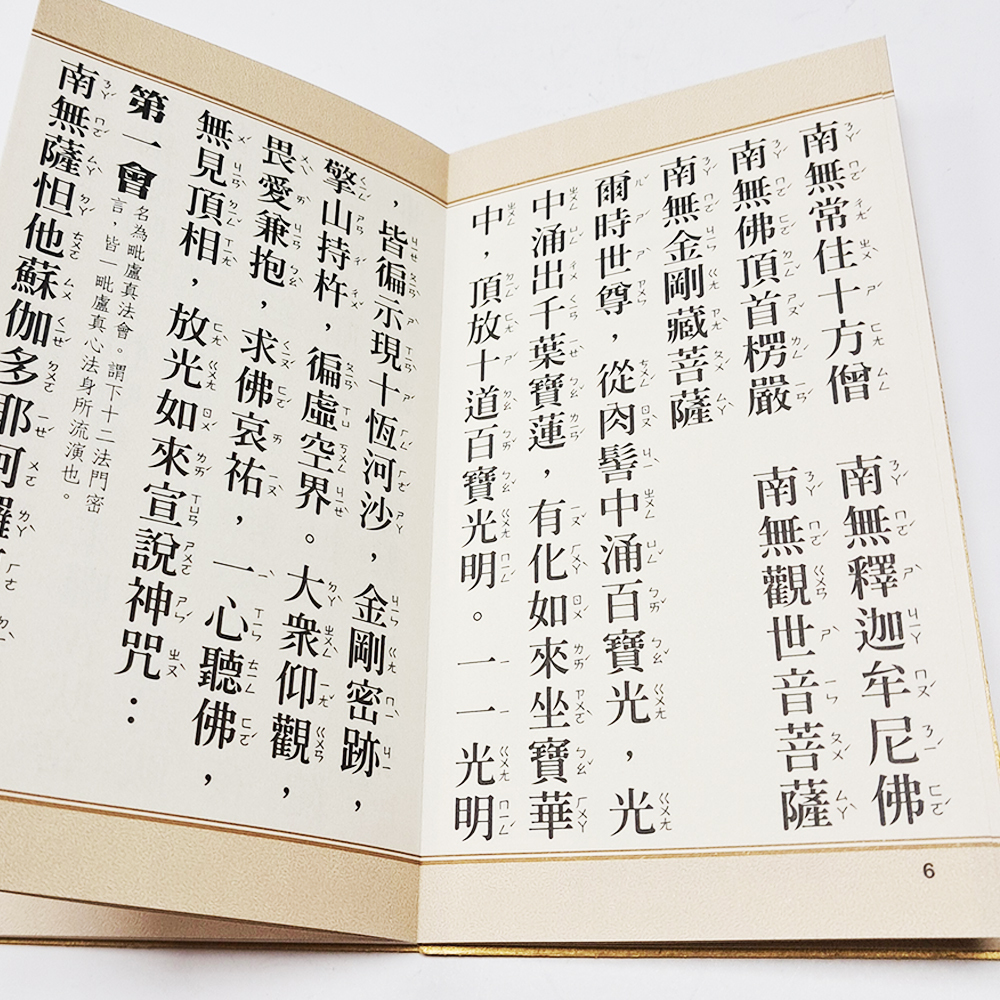 南無常住十方僧　南無釋迦牟尼佛
南無佛頂首楞嚴　南無觀世音菩薩
南無金剛藏菩薩
爾時世尊，從肉髻中涌百寶光，光
中涌出千葉寶蓮，有化如來坐寶華
中，頂放十道百寶光明。一一光明
6
，皆徧示現十恆河沙，金剛密跡，
擎山持杵，徧虛空界。大眾仰觀，
畏愛兼抱，求佛哀祐，一心聽佛，
無見頂相，放光如來宣說神咒：
第一會 名為毗盧真法會。謂下十二法門密
言，皆一毗盧真心法身所流演也。
南無薩怛他蘇伽多耶阿